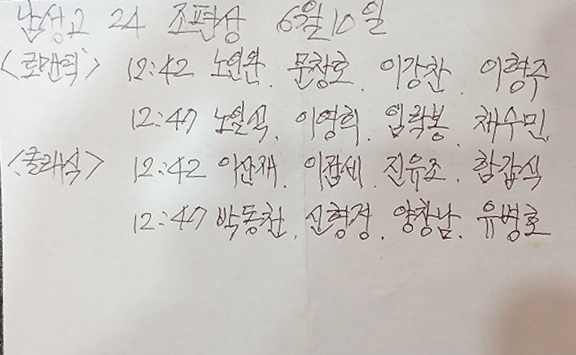 남성고 24 조편성 6월10일
<로맨틱> 12:42 노연완. 문창호. 이강찬. 이형주
12:47 노일식. 이영희. 임락봉. 채수민.
<클래식> 12:42 이산재. 이잡세. 진유조. 함갑식
12:47 박동천. 신형정. 양창남. 유병호